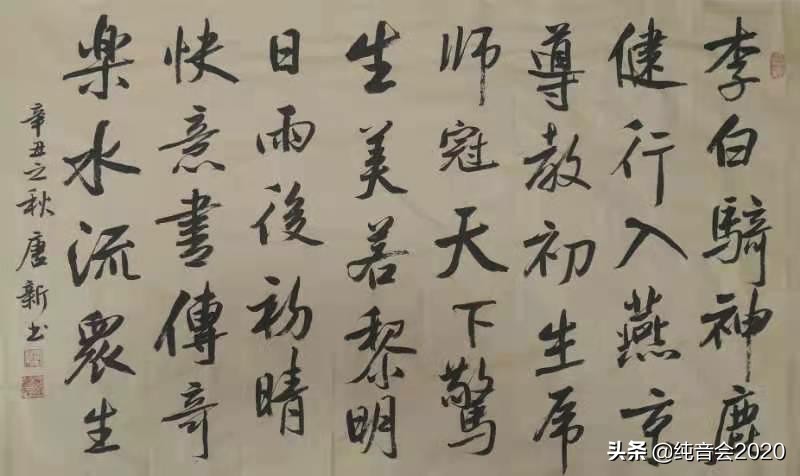 李白騎神鹿
健行入燕京
導教初生虎
师冠天下驚
生美若黎明
日雨後初晴
快意書傳奇
楽水流衆生
辛丑之秋 唐新书
头条 @纯音会2020